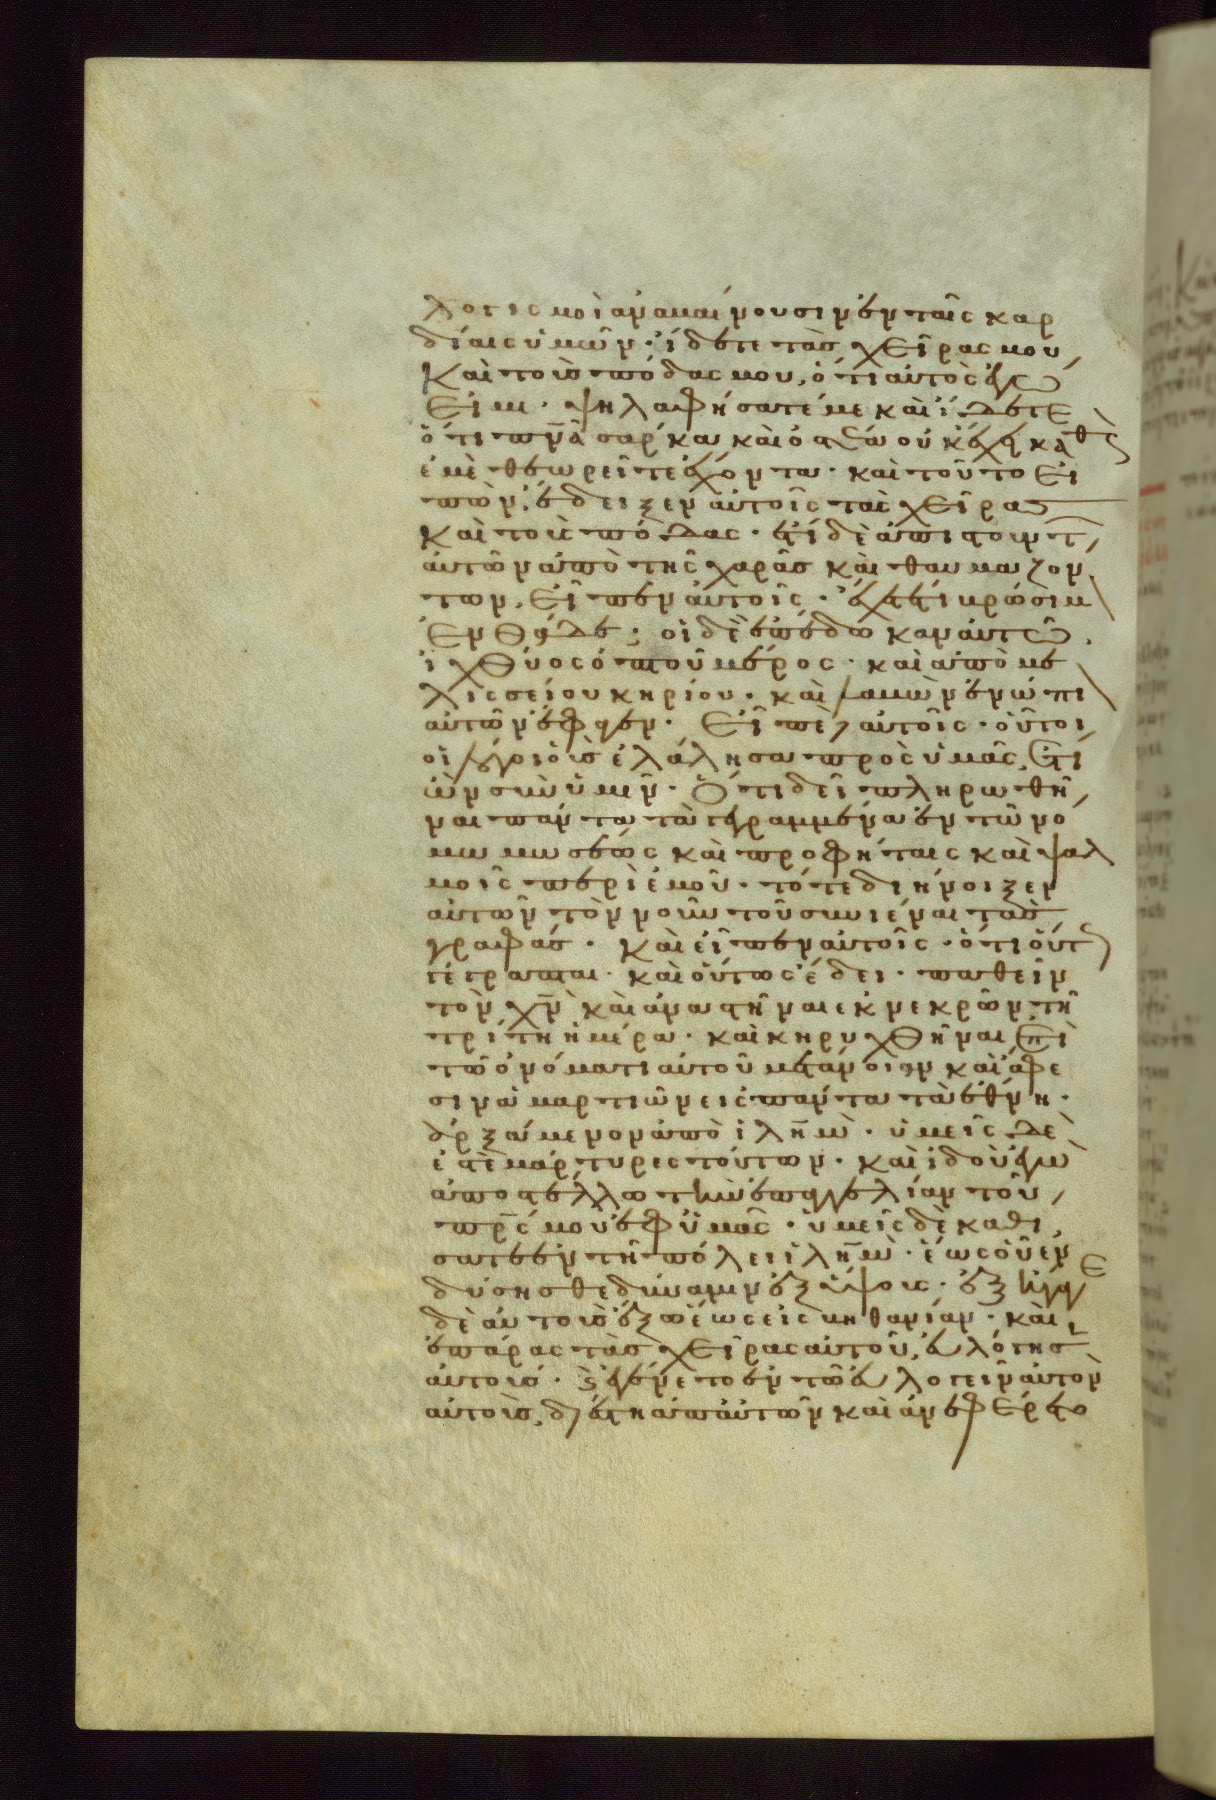 λογισμοὶ ἀναβαίνουσιν ἐν ταῖς καρ
δίαις ὑμῶν· ἴδετε τὰς χεῖρας μου,
καὶ τοὺς πόδας μου, ὅτι αὐτὸς ἐγώ
εἰμι· ψηλαφήσατέ με καὶ ἴδετε
ὅτι πνᾶ σάρκα καὶ ὀστέα οὐκ ἔχει καθὼς
ἐμὲ θεωρεῖτε ἔχοντα· καὶ τοῦτο εἰ
πὼν, ἔδειξεν αὐτοῖς τὰς χεῖρας
καὶ τοὺς πόδας· ἔτι δὲ ἀπιστούντ
αὐτῶν ἀπὸ τῆς χαρᾶς καὶ θαυμαζόν
των, εἶπεν αὐτοῖς· ἔχετέ τι βρώσιμ
ἐνθάδε; οἱ δὲ ἐπέδωκαν αὐτῶ,
ἰχθύος ὀπτοῦ μέρος· καὶ ἀπὸ με
λισσείου κηρίου· καὶ λαβὼν ἐνώπι
αὐτῶν ἔφαγεν· Εἶπε δὲ αὐτοῖς· οὗτοι
οἱ λόγοι οὓς ἐλάλησα πρὸς ὑμᾶς, ἔτι
ὢν σὺν ὑμῖν· Ὅτι δεῖ πληρωθῆ
ναι πάντα τὰ γεγραμμένα ἐν τῶ νό
μω μωσέως καὶ προφήταις καὶ ψαλ
μοῖς περὶ ἐμοῦ· τότε διήνοιξεν
αὐτῶν τὸν νοῦν τοῦ συνιέναι τὰς
γραφάς· Καὶ εἶπεν αὐτοῖς· ὅτι οὕτ
γέγραπται· καὶ οὕτως ἔδει· παθεῖν
τὸν χν̄ καὶ ἀναστῆναι ἐκ νεκρῶν τῆ
τρίτη ἡμέρα· καὶ κηρυχθῆναι ἐπὶ
τῶ ὀνόματι αὐτοῦ μετάνοιαν καὶ ἄφε
σιν ἁμαρτιῶν εἰς πάντα τὰ ἔθνη·
ἀρξάμενον ἀπὸ ἱλῆμ· ὑμεῖς δέ
ἐστὲ μάρτυρες τούτων· καὶ ἰδοὺ ἐγὼ
ἀποστέλλω τὴν ἐπαγγελίαν τοῦ
πρς̄ μου ἐφ' ὑμᾶς· ὑμεῖς δὲ καθί
σατε ἐν τῆ πόλει ἱλῆμ· ἕως οὗ ἐν
δύσησθε δύναμιν ἐξ ὕψους· ἐξήγαγε
δὲ αὐτοὺς ἔξω ἕως εἰς βηθανίαν· καὶ
ἐπάρας τὰς χεῖρας αὐτοῦ, εὐλόγησ
αὐτούς· καὶ ἐγένετο ἐν τῶ εὐλογεῖν αὐτὸν
αὐτοὺς, διέστη ἀπ' αὐτῶν καὶ ἀνεφέρετο